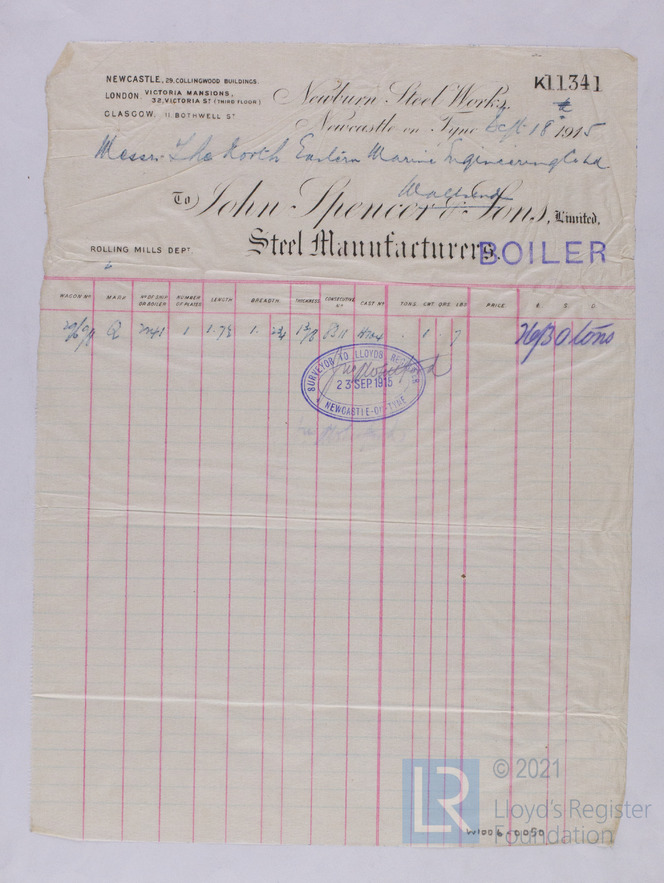 NEWCASTLE, 29, COLLINGWOOD BUILDINGS.
LONDON, VICTORIA MANSIONS,
32, VICTORIA ST (THIRD FLOOR)
GLASGOW, 11 BOTHWELL ST
K11341
Newburn Steel Works,
Newcastle on Tyne Sept 18 1915
Messrs The North Eastern Marine Engineering Co Ltd
Wallsend
To John Spencer & Sons, Limited,
Steel Manufacturers.
BOILER
ROLLING MILLS DEPT.
WAGON No MARK No OF SHIP OR BOILER NUMBER OF PLATES LENGTH BREADTH THICKNESS CONSECUTIVE No CAST No TONS. CWT. QRS. LBS PRICE. £. S. D.
1 1. 1 . 1 . 7 tons
SURVEYOR TO LLOYDS REGISTER
23 SEP. 1915
NEWCASTLE-ON-TYNE
LR
© 2021
Lloyd's Register
Foundation
W1006-0050